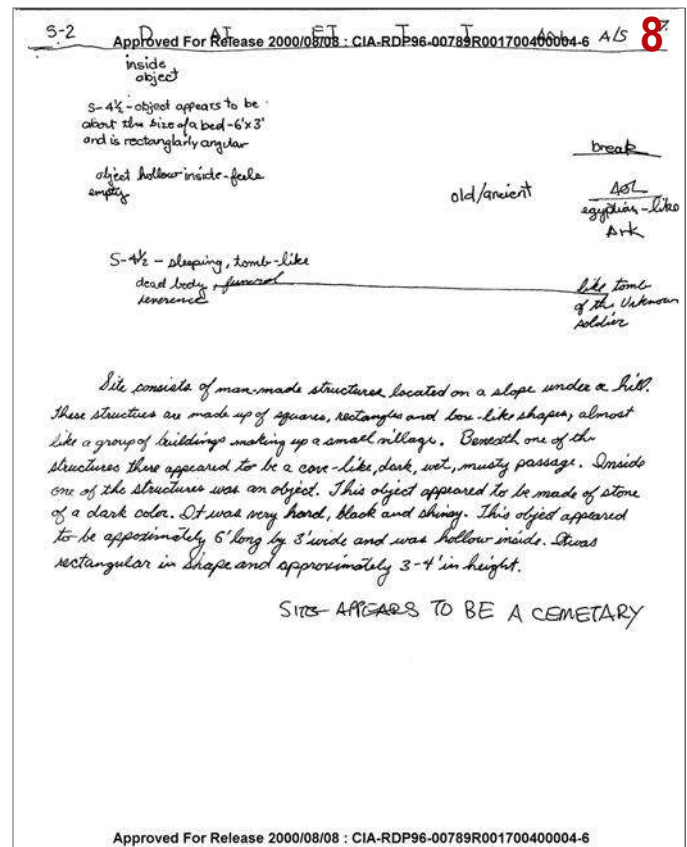 S-2 D AI EI T I AOL A/S 8
Approved For Release 2000/08/08 : CIA-RDP96-00789R001700400004-6
inside
object
S-4½-object appears to be
about the size of a bed-6'x3'
and is rectanglarly angular
break
object hollow inside-feels
empty
old/ancient
AOL
egyptian-like
Ark
S-4½ - sleeping, tomb-like
dead body, funeral
reverence
like tomb
of the Unknown
soldier
Site consists of man-made structures located on a slope under a hill.
These structures are made up of squares, rectangles and box-like shapes, almost
like a group of buildings making up a small village. Beneath one of the
structures there appeared to be a cave-like, dark, wet, musty passage. Inside
one of the structures was an object. This object appeared to be made of stone
of a dark color. It was very hard, black and shiny. This object appeared
to be appoximately 6' long by 3' wide and was hollow inside. It was
rectangular in shape and approximately 3-4' in height.
SITE APPEARS TO BE A CEMETARY
Approved For Release 2000/08/08 : CIA-RDP96-00789R001700400004-6